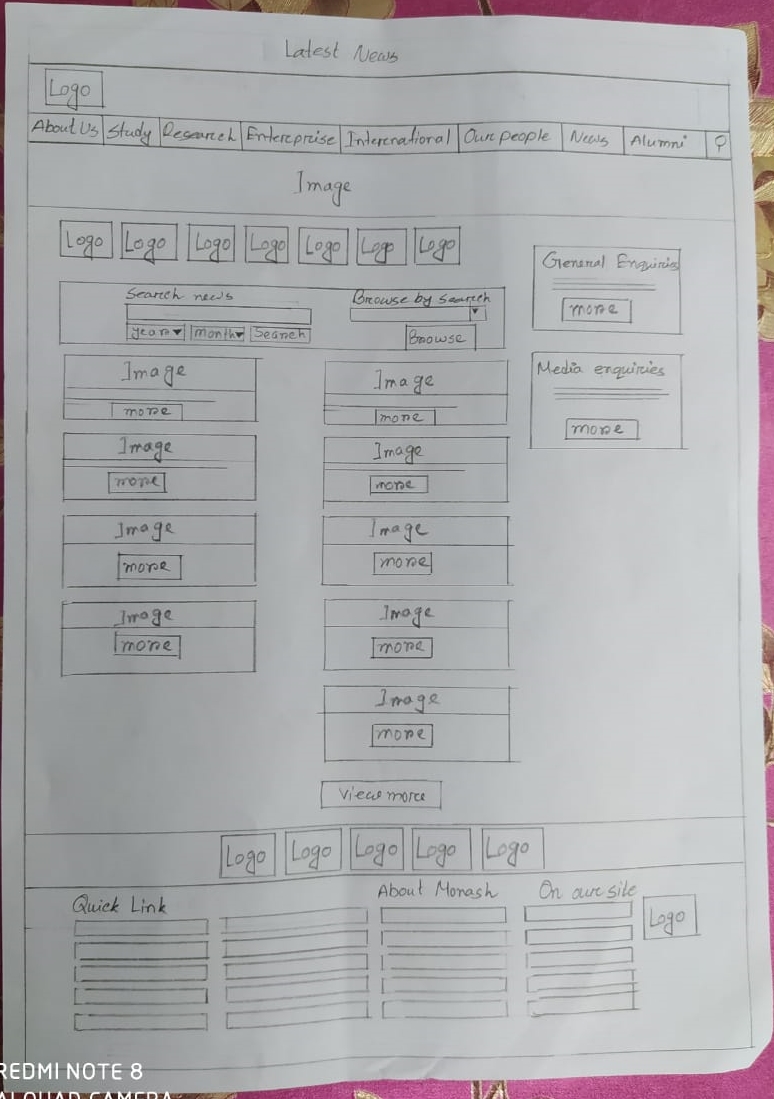 Latest News
Logo
About Us Study Research Enterprise International Our people News Alumni
Image
Logo Logo Logo Logo Logo Logo Logo
General Enquiries
more
Search news Browse by Search
year month Search Browse
Media enquiries
more
Image Image
more more
Image Image
more more
Image Image
more more
Image Image
more more
Image
more
View more
Logo Logo Logo Logo Logo
Quick Link About Monash On our site
Logo
REDMI NOTE 8
AI QUAD CAMERA